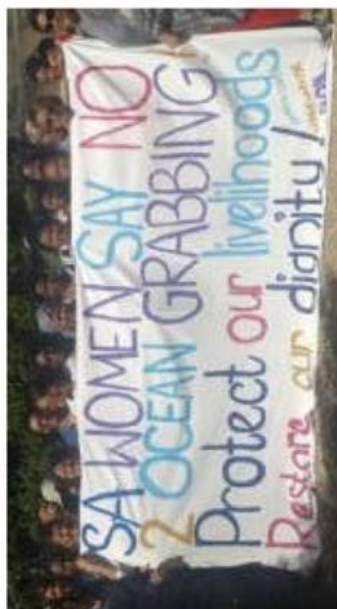 SA WOMEN SAY NO
2 OCEAN GRABBING
Protect our livelihoods
Restore our dignity!